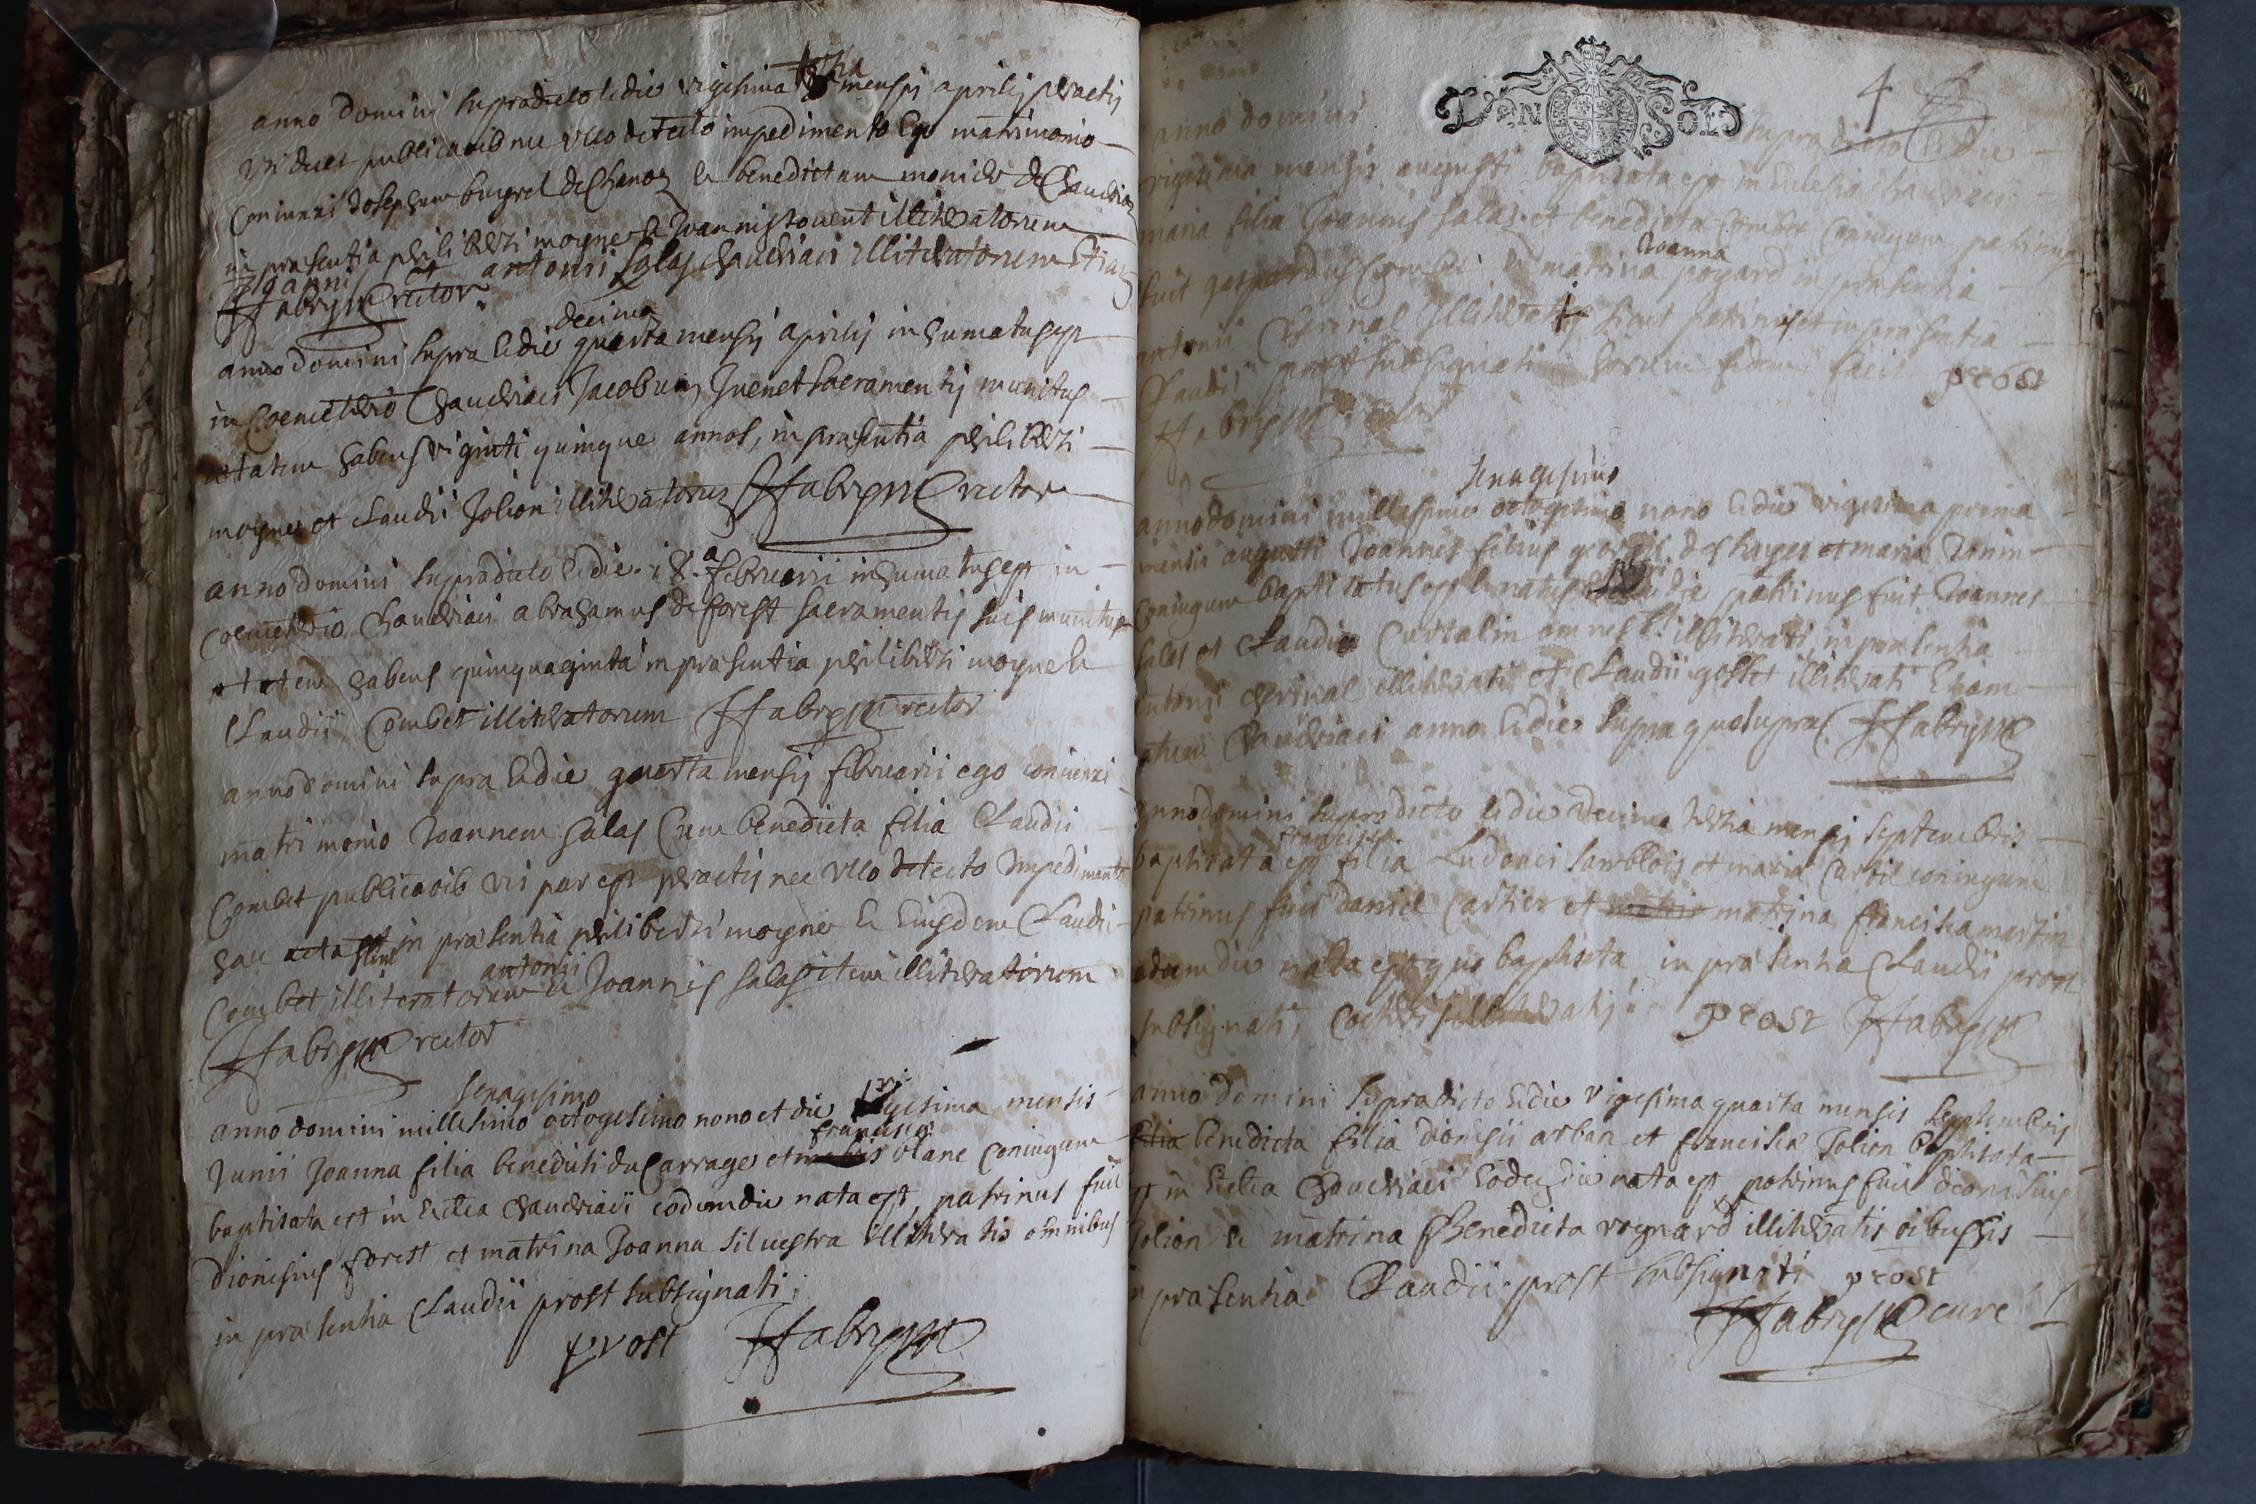 anno domini supradicto et die vigesima tertia mensis aprilis peractis
publicaoib nec ullo detecto impedimento Ego matrimonio
coniunxi Josephum burgrel de Chanoz et benedictam monier de Chaudriaz
in præsentia philiberti moyne et Joannis Jouent illiteratorum
et Joannis et antonii Salas chaudriaci illiteratorum etiam
ffabry rector
anno domini supra et die decima quarta mensis aprilis inhumatus est
in Coemeterio Chaudriaci Jacobus Juenet sacramentis munitus
ætatem habens viginti quinque annos, in præsentia philiberti
moyne et Claudii Jolion illiteratorum ffabry rector
anno domini supradicto et die 18.a februarii inhumatus est in
coemeterio Chaudriaci abrahamus de forest sacramentis suis munitus
ætatem habens quinquaginta in præsentia philiberti moyne et
Claudii Combet illiteratorum ffabry rector
anno domini supra et die quarta mensis februarii ego coniunxi
matrimonio Joannem Salas Cum benedicta filia Claudii
Combet publicaoib uti par est peractis nec ullo detecto Impedimento
hæc acta sunt in præsentia philiberti moyne et Eiusdem Claudii
Combet illiteratorum et antonii Joannis Salas item illiteratorum
ffabry rector
anno domini millesimo sexagesimo octogesimo nono et die mensis
Junii Joanna filia benedicti du Carrage et francisca olane Coniugum
baptisata est in Ecclea Chaudriaci eodem die nata est, patrinus fuit
Dionisius forest et matrina Joanna siluestra illiteratis omnibus
in præsentia Claudii prost subsignati;
prost ffabry
GEN SOL
4
anno domini supradicto et die
vigesima mensis augusti baptisata est in Eclesia Chaudriaci
maria filia Joannis Salas et benedicta Combet Coniugum patrinus
fuit gaspardus Combet et matrina Joanna pogard in præsentia
antonii Cherinal illiterati sicut patrinus et in præsentia
Claudii prost subsignati horum fidem facit prost
ffabry rector
anno domini millesimo sexagesimo octogesimo nono et die vigesima prima
mensis augusti Joannes filius georgii deshayes et maria Janin
Coniugum baptisatus est et natus die patrinus fuit Joannes
Salas et Claudia Curtalin omnes illiterati, in præsentia
antonii Cherinal illiterati et Claudii gollet illiterati Etiam
Chaudriaci anno et die supra quo supra ffabry
anno domini supradicto et die decima tertia mensis septembris
baptisata est francisca filia Ludouici samblois et maria Curtil coniugum
patrinus fuit daniel Cartier et matrina francisca martin
eadem die nata est qua baptisata in præsentia Claudii prost
subsignati, Coeteris illiteratis; prost ffabry
anno domini supradicto et die vigesima quarta mensis septembris
benedicta filia dionisii arban et francisca Jolion baptisata
est in Ecclea Chaudriaci Eodem die nata est patrinus fuit dionisius
Jolion et matrina Benedicta rognard illiteratis oibussis
in præsentia Claudii prost subsignati prost
ffabry cure